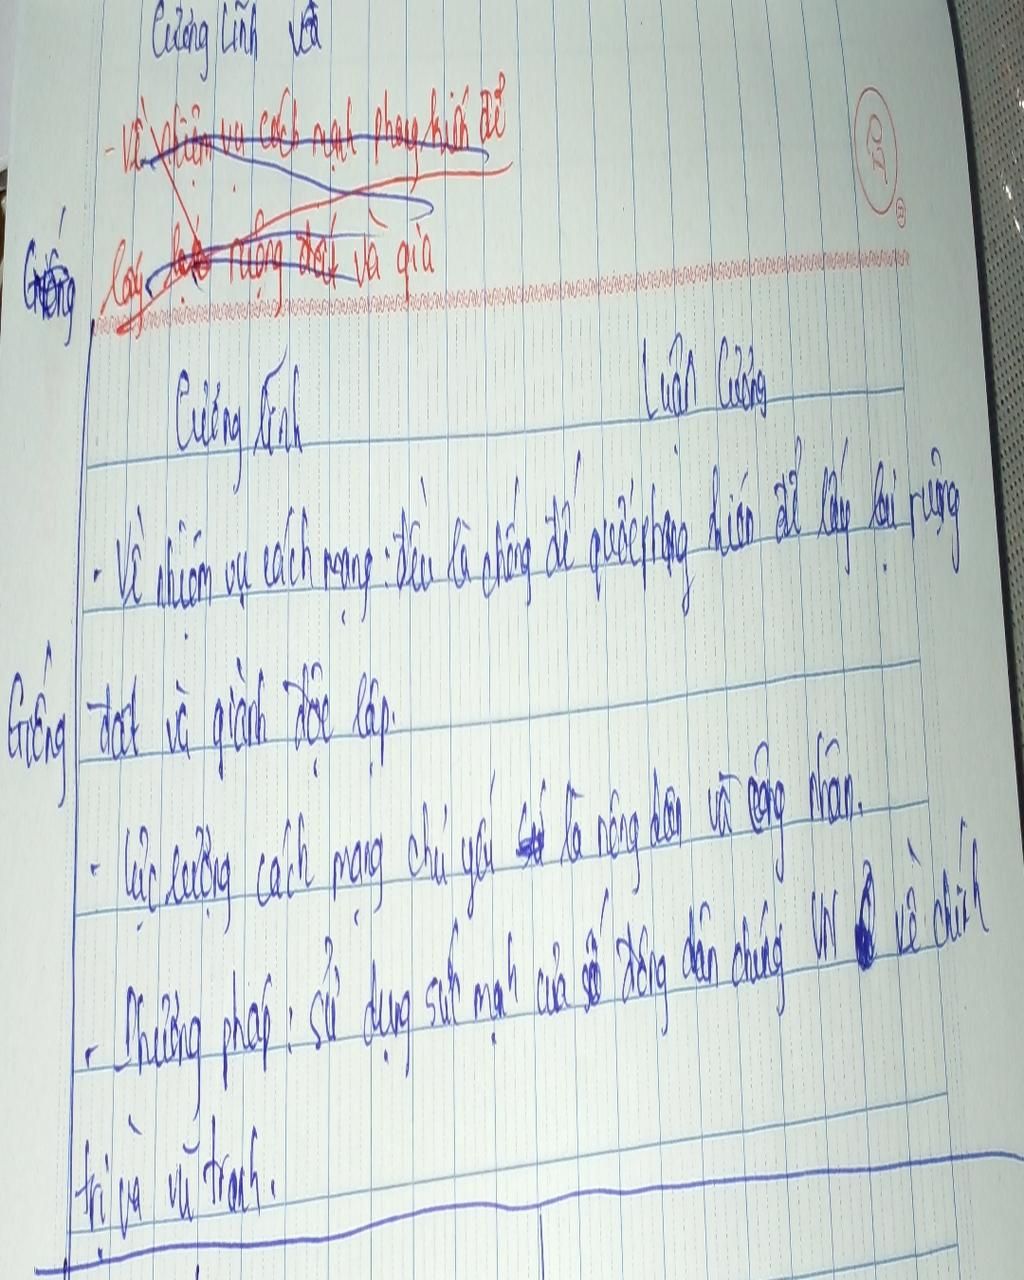 Cương lĩnh và
- Về nhiệm vụ cách mạnh phong kiến để
lấy lại ruộng đất và già
Giống
Cương lĩnh Luận Cương
- Về nhiệm vụ cách mạng: đều là chống đế quốc phong kiến để lấy lại ruộng
Giống đất và giành độc lập.
- Lực lượng cách mạng chủ yếu là nông dân và công nhân.
- Phương pháp: sử dụng sức mạnh của số đông dân chúng VN về chính
trị và vũ trang.